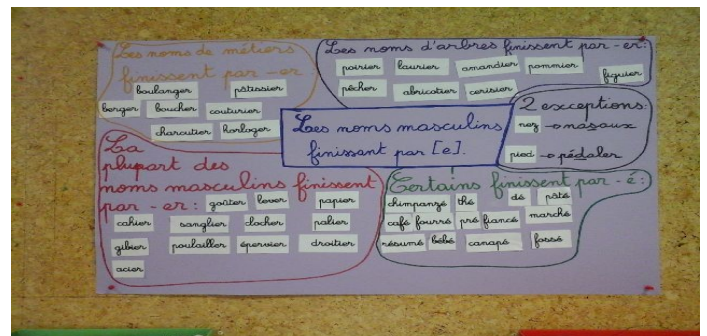 Les noms masculins
finissant par [e].
Les noms de métiers
finissent par -er
boulanger pâtissier
berger boucher couturier
charcutier horloger
Les noms d'arbres finissent par -er:
poirier laurier amandier pommier
figuier
pêcher abricotier cerisier
2 exceptions:
nez → nasaux
pied → pédaler
La
plupart des
noms masculins finissent
par -er: goûter lever papier
cahier sanglier clocher palier
gibier poulailler épervier droitier
acier
Certains finissent par -é:
chimpanzé thé dé pâté
café fourré pré fiancé marché
résumé bébé canapé fossé